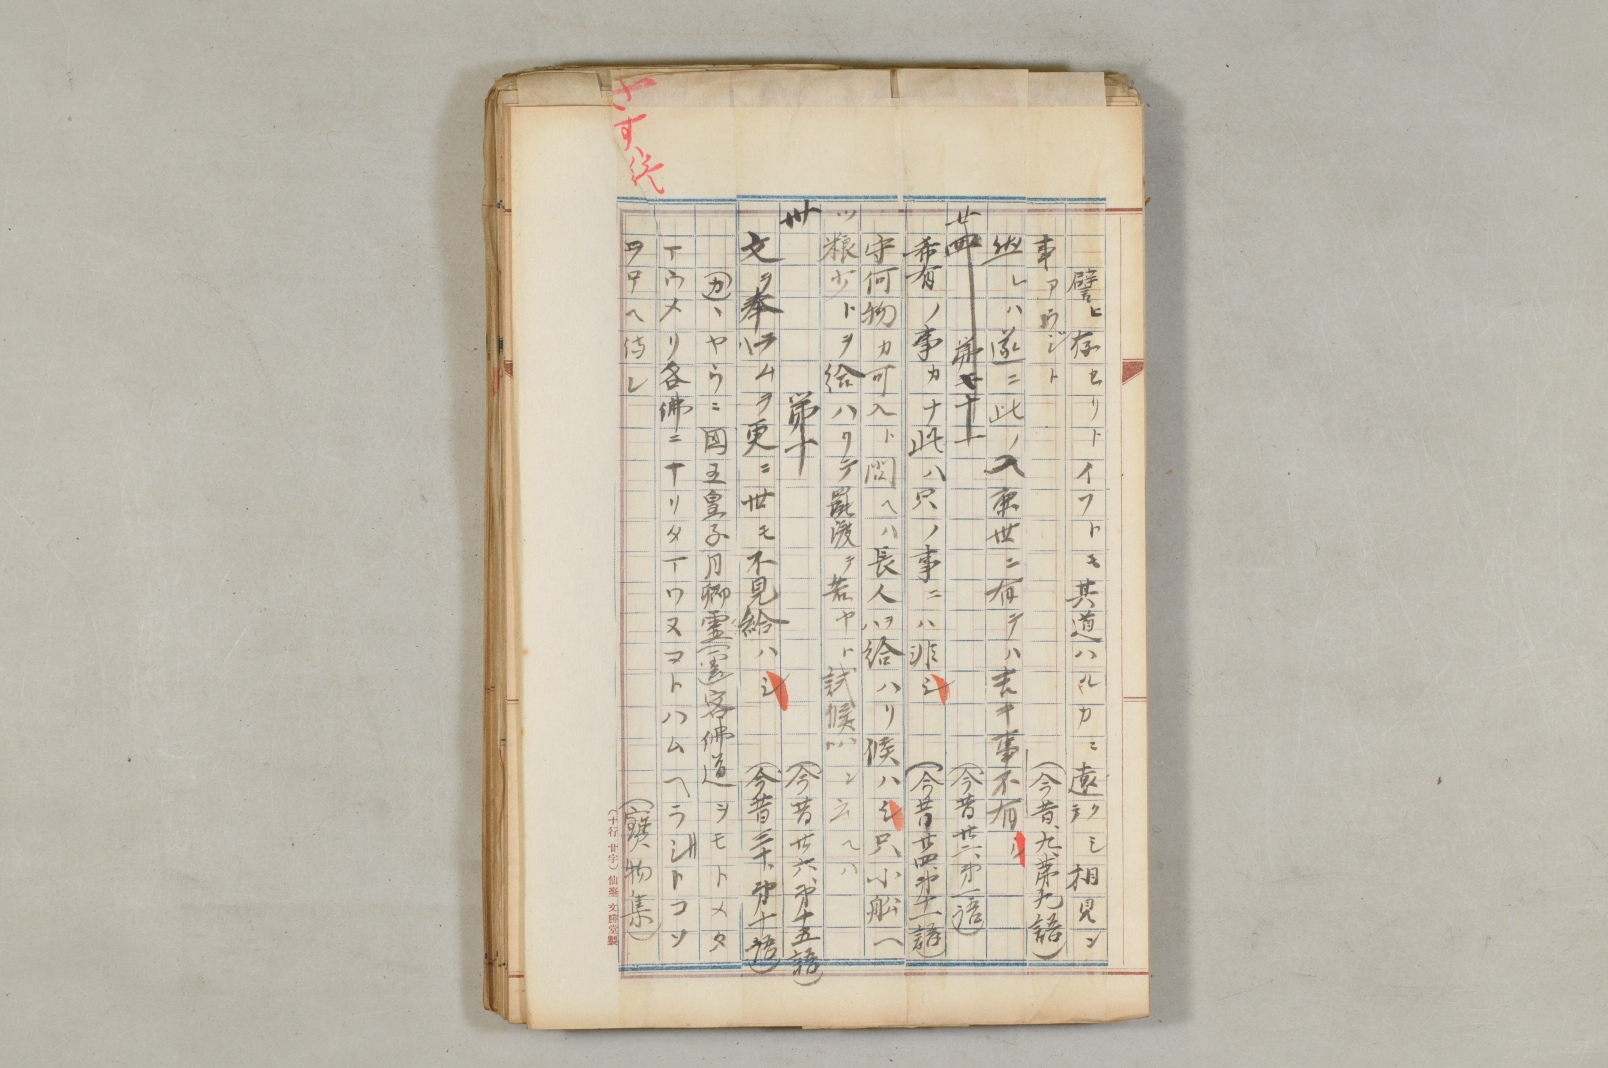 譬ヒ存セリトイフトモ其道ハルカニ遠クシテ相見ン
事アラジト
(今昔、九、第九語)
然レハ遂ニ此ノ人東世ニ有テハ吉キ事不有ル
廿四 第十一
(今昔廿二、第一語)
希有ノ事カナ此ハ只ノ事ニハ非シ
(今昔廿四、第十一語)
守何物カ可入ト問ヘハ長人ハヲ給ハリ候ハシ只小船ヘ
ツ粮少トヲ給ハリテ罷渡テ若ヤト試候ハント云ヘハ
(今昔廿六、第十五語)
卅 第十
文ヲ奉ラムヲ更ニ世モ不見給ハシ
(今昔三十、第十語)
カヽヤウニ国王皇子月卿雲(霊)客佛道ヲモトメタ
マウメリ各佛ニナリタマウヌコトハムヘラシトコソ
ヲホヘ侍レ
(寳物集)
(十行 廿字) 仙臺 文勝堂製